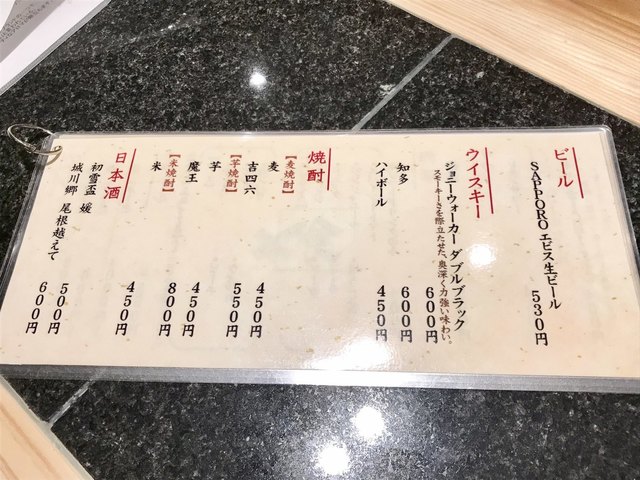 ビール
SAPPORO ヱビス生ビール 530円
ウイスキー
ジョニーウォーカー ダブルブラック 600円
スモーキーさを際立たせた、奥深く力強い味わい。
知多 600円
ハイボール 450円
焼酎
【麦焼酎】
麦 450円
吉四六 550円
【芋焼酎】
芋 450円
魔王 800円
【米焼酎】
米 450円
日本酒
初雪盃 媛 500円
城川郷 尾根越えて 600円